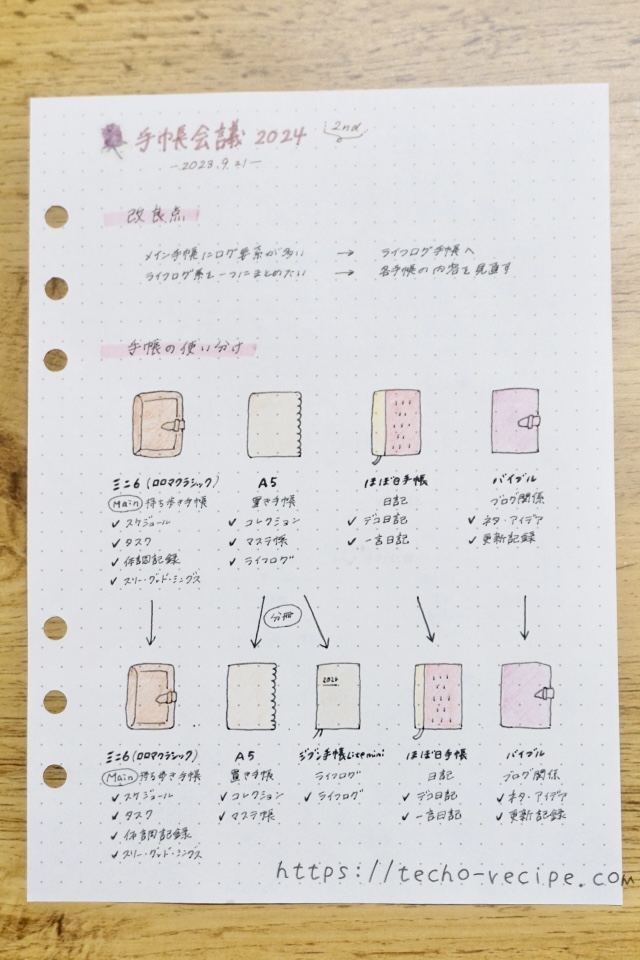 手帳会議 2024 2nd
−2023.9.21−
改良点
メイン手帳にログ要素が多い → ライフログ手帳へ
ライフログ系を一つにまとめたい → 各手帳の内容を見直す
手帳の使い分け
ミニ6(ロロマクラシック) A5 ほぼ日手帳 バイブル
Main 持ち歩き手帳 置き手帳 日記 ブログ関係
✓ スケジュール ✓ コレクション ✓ デコ日記 ✓ ネタ・アイデア
✓ タスク ✓ マステ帳 ✓ 一言日記 ✓ 更新記録
✓ 体調記録 ✓ ライフログ
✓ スリー・グッド・シングス
分冊
2024
ミニ6(ロロマクラシック) A5 ジブン手帳Lite mini ほぼ日手帳 バイブル
Main 持ち歩き手帳 置き手帳 ライフログ 日記 ブログ関係
✓ スケジュール ✓ コレクション ✓ ライフログ ✓ デコ日記 ✓ ネタ・アイデア
✓ タスク ✓ マステ帳 ✓ 一言日記 ✓ 更新記録
✓ 体調記録
✓ スリー・グッド・シングス
https://techo-recipe.com